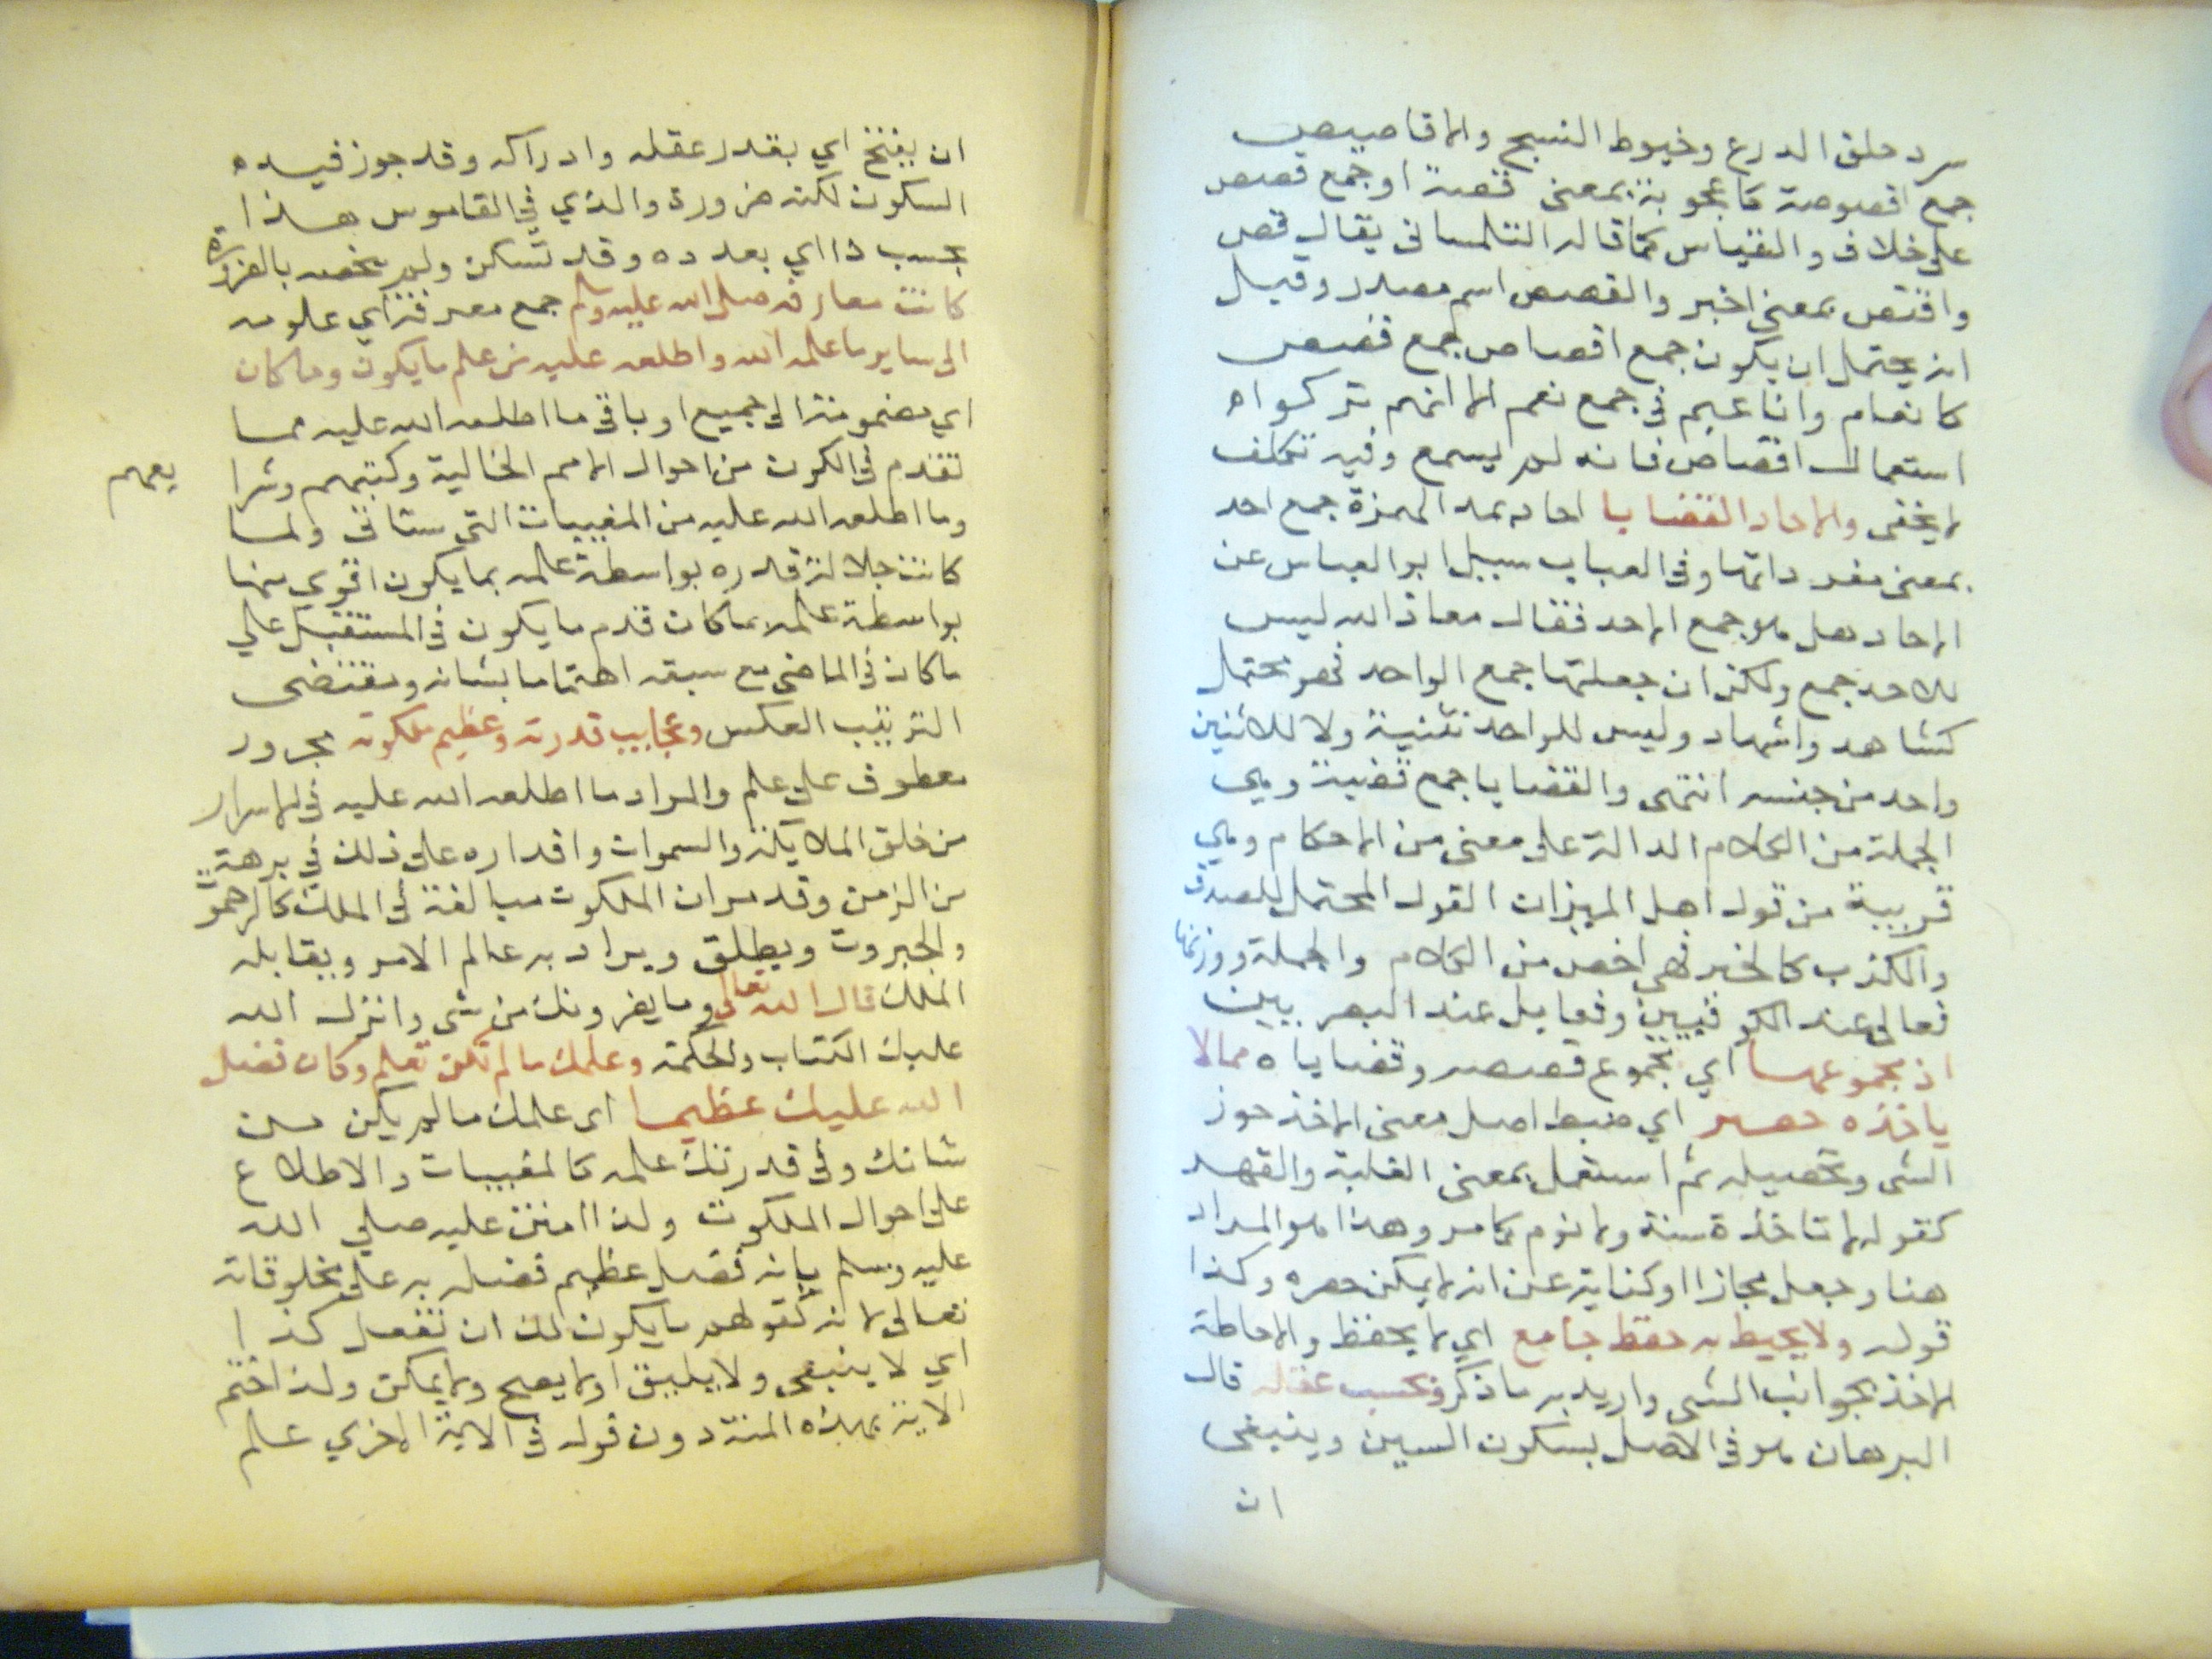 سرد حلق الدرع وخيوط النسج والاقاصيص
جمع اقصوصة كاعجوبة بمعنى قصة او جمع قصص
على خلاف والقياس كما قاله التلمسانى يقال قص
واقتص بمعنى اخبر والقصص اسم مصدر وقيل
انه يحتمل ان يكون جمع اقصاص جمع قصص
كانعام واناعيم في جمع نعم الا انهم تركواه
استعمال اقصاص فانه لم يسمع وفيه تكلف
لا يخفى والاحاد القضايا احاد بمد الهمزة جمع احد
بمعنى مفرداتها وفى العباب سيل ابو العباس عن
الاحاد هل هو جمع الاحد فقال معاذ الله ليس
للاحد جمع ولكن ان جعلتها جمع الواحد فهو محتمل
كشاهد واشهاد وليس للواحد تثنية ولا للاثنين
واحد من جنسه انتهى والقضايا جمع قضية وهى
الجملة من الكلام الدالة على معنى من الاحكام وهي
قريبة من قول اهل الميزان القول المحتمل للصدق
والكذب كالخبر فهى اخص من الكلام والجملة ووزنها
فعالى عند الكوفيين وفعايل عند البصريين
اذ مجموعها اي مجموع قصصه وقضاياه ممالا
ياخذه حصر اي ضبط اصل معنى الاخذ حوز
الشى وتحصيله ثم استعمل بمعنى الغلبة والقهر
كقوله لا تاخذه سنة ولا نوم كما مر وهذا هو المراد
هنا وجعل مجازا او كناية عن انه لا يمكن حصره وكذا
قوله ولا يحيط به حفظ جامع اي لا يحفظ والاحاطة
الاخذ بجوانب الشي واريد به ما ذكر وبحسب عقله قال
البرهان هو في الاصل بسكون السين وينبغى
ان
ان يفتح اي بقدر عقله وادراكه وقد جوز فيه ه
السكون لكنه ضرورة والذي في القاموس هذا
بحسب ذا اي بعدده وقد تسكن ولم يخصه بالضرورة
كانت معارفه صلى الله عليه وسلم جمع معرفة اي علومه
الى ساير ما علمه الله واطلعه عليه من علم ما يكون وما كان
اي مضمومة الى جميع او باقى ما اطلعه الله عليه مما
تقدم في الكون من احوال الامم الخالية وكتبهم وشرا يعهم
وما اطلعه الله عليه من المغيبات التى ستاتى ولما
كانت جلالة قدره بواسطة علمه بما يكون اقوي منها
بواسطة علمه بما كان قدم ما يكون في المستقبل علي
ما كان في الماضى مع سبقه اهتماما بشانه ومقتضى
الترتيب العكس وعجايب قدرته وعظيم ملكوته مجرور
معطوف على علم والمراد ما اطلعه الله عليه في الاسرار
من خلق الملايكة والسموات واقداره على ذلك في برهة
من الزمن وقد مر ان الملكوت مبالغة في الملك كالرحموت
والجبروت ويطلق ويراد به عالم الامر ويقابله
الملك قال الله تعالى وما يضرونك من شى وانزل الله
عليك الكتاب والحكمة وعلمك ما لم تكن تعلم وكان فضل
الله عليك عظيما اى علمك ما لم يكن من
شانك وفي قدرتك علمه كالمغيبات والاطلاع
على احوال الملكوت ولذا امتن عليه صلى الله
عليه وسلم بانه فضل عظيم فضله به على مخلوقاته
تعالى لانه كقولهم ما يكون لك ان تفعل كذا
اي لا ينبغى ولا يليق او لا يصح ولا يمكن ولذا ختم
الاية بهذه المنة دون قوله في الاية الاخري علم